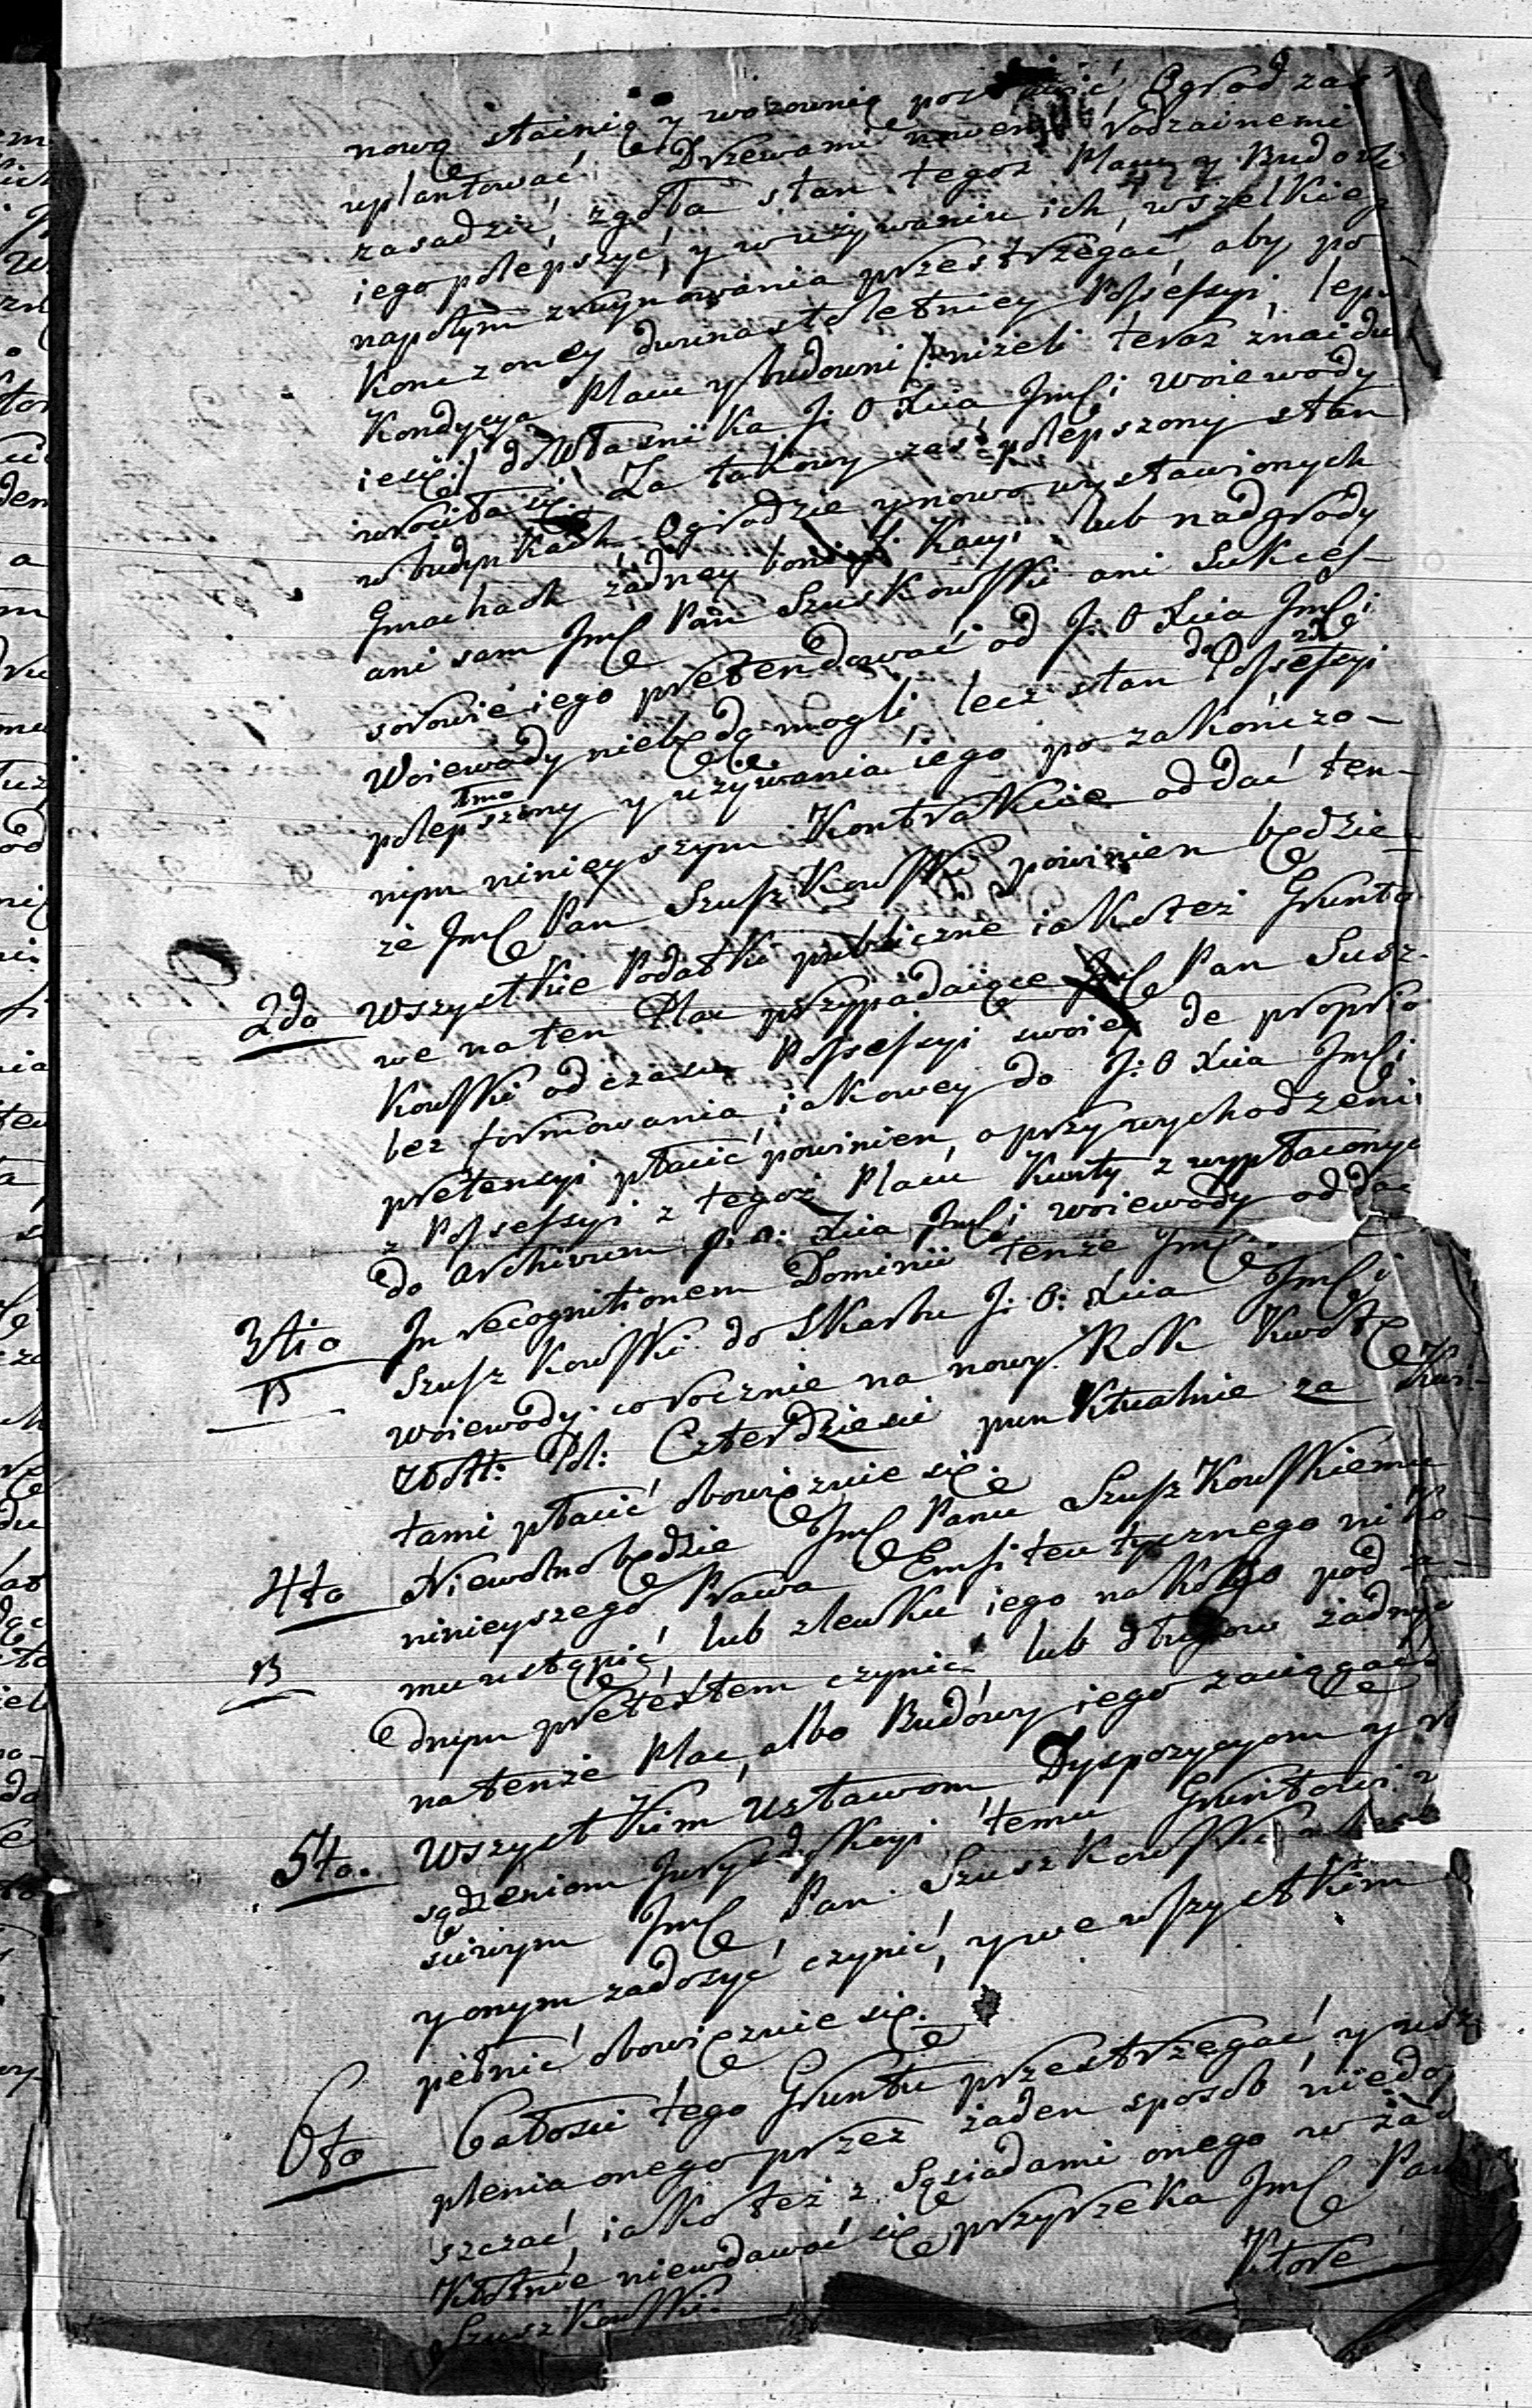 nową stainię y wozownię postawić, Ogrod zaś
uplantować, Drzewami nowemi rodzainemi
zasadzić, zgoła stan tegoż Placu y Budowli
iego polepszyć, y w używaniu ich, wszelkieg
napotym zruynowania przestrzegać, aby po
konczoney dwunastoletniey Possessyi, leps
Kondycya Placu y budowni /: niżeli teraz znaidu
iesię :/ do Własnika J: O Xcia Jmci Woiewody
wrociła się. Za takowy zaś polepszony stan
w budynkach Ogrodzie y nowo wystawionych
Gmachach żadney bonifikacyi lub nadgrody
ani sam Jmć Pan Szuszkowski ani Sukces-
sorowie iego pretendować od J: O Xcia Jmci
Woiewody niebędą mogli, lecz stan 2do Possessyi
polepszony 1mo y używania iego po zakończo-
nym ninieyszym Kontrakcie oddać ten-
że Jmć Pan Szuszkowski powinien będzie
2do Wszystkie Podatki publiczne iako też Grunto
we na ten Plac przypadaiące Jmć Pan Susz-
kowski od czasu Possessyi swoiey de proprio
bez formowania iakowey do J: O Xcia Jmci
pretensyi płacić powinien, a przy wychodzeni
z Possessyi z tegoż Placu Kwity z wypłaconyc
do Archivum J: O: Xcia Jmci woiewody oddać
3tio In recognitionem Dominii tenże Jmć
Szuszkowski do Skarbu J: O: Xcia Jmci
B
Woiewody corocznie na nowy Rok Kwotę
Złott: Pol: Czterdziesci punktualnie za Kwi-
tami płacić obowięzuie się.
4to Niewolno będzie Jmć Panu Szuszkowskiemu
ninieyszego Prawa Emfiteutycznego niko-
B
mu ustąpić, lub zlewku iego na kogo pod ża-
dnym pretextem czynić lub długow żadnyc
na tenże Plac, albo Budowy iego zaciągać
5to. Wszystkim Ustawom, Dyspozycyom y ro
sądzeniom Jurysdykcyi temu Gruntowi
sciwym Jmć Pan Szuszkowski
y onym zadosyć czynić, y we wszystkim
pełnić obowięzuie się.
6to Całosci tego Gruntu przestrzegać, y usz
plenia onego przez żaden sposob niedop
szczać, iako też z Sąsiadami onego w żad
Kłotnie niewdawać się przyrzeka Jmć Pan
Szuszkowski.
Ktore